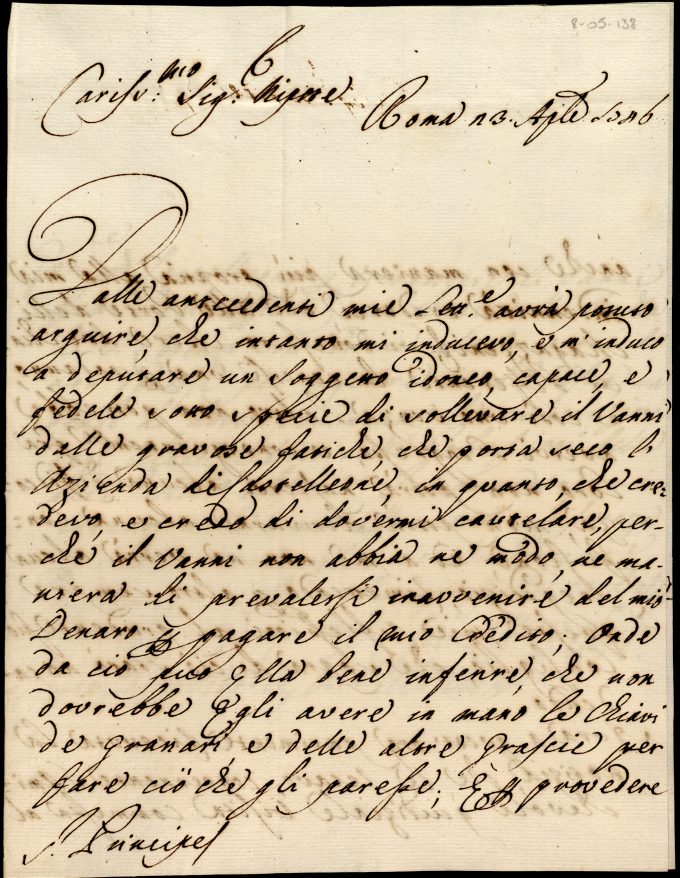 8-05-138
Cariss.mo Sig.r Nipote
Roma 23. Ap.le
Dalle antecedenti mie Lett.e avrà potuto
arguire, che intanto mi inducevo, e m'induco
a deputare un Soggetto idoneo, capace, e
fedele sotto specie di sollevare il Vanni
dalle gravose fatiche, che porta seco l'
Azienda di Castelleone, in quanto, che cre-
devo, e credo di dovermi cautelare, per-
ché il Vanni non abbia ne modo, ne ma-
niera di prevalersi in avvenire del mio
Denaro p pagare il mio Credito; Onde
da ciò può Ella bene inferire, che non
dovrebbe Egli avere in mano le Chiavi
de Granari e delle altre Grascie per
fare ciò che gli paresse; E p provedere
S. Principe